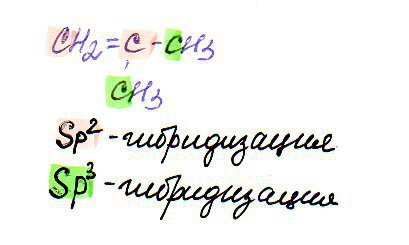 CH2=C-CH3
CH3
Sp2-гибридизация
Sp3-гибридизация